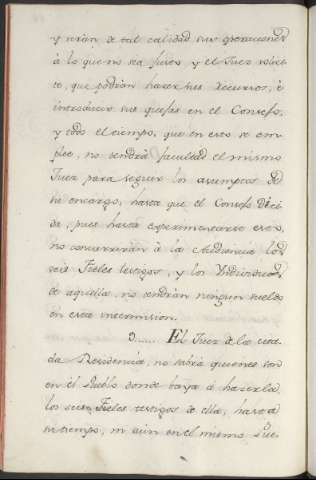 y serán de tal calidad sus operaciones
à lo que no sea justo, y el Juez
que podrán hacer sus recursos, è
introducir sus quejas en el Consejo,
y todo el tiempo, que en esto se em-
plee, no tendrá facultad el mismo
Juez para seguir los asumptos de
su encargo, hasta que el Consejo Deci-
da, pues hasta experimentarse esto,
no concurrirán à la Audiencia los
seis Fieles testigos, y los Yndividuos
de aquella, no tendrán ningun sueldo
en esta intermision.
9...... El Juez de la cita-
da Residencia, no sabrá quienes son
en el Pueblo donde baya à hacerla,
los seis Fieles testigos de ella, hasta
su tiempo, ni aun en el mismo Pue-